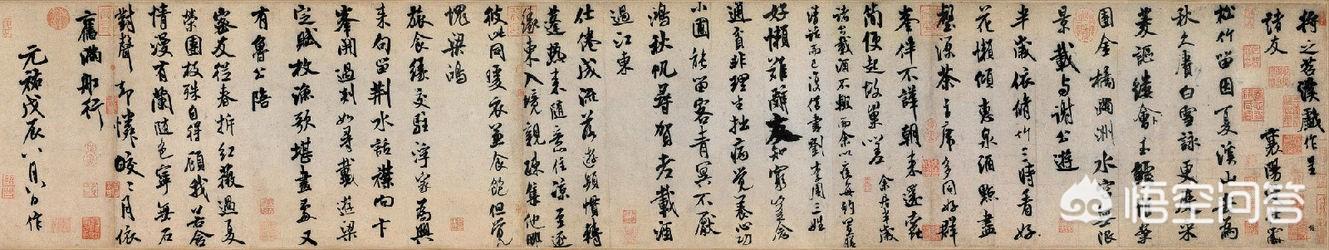 將之苕溪戲作呈
諸友 襄陽漫仕黻
松竹留因夏溪山去為
秋久賡白雪詠更度采
菱謳縷會玉鱸堆案
團金橘滿洲水宮無限
景載與謝公遊
半歲依脩竹三時看好
花懶傾惠泉酒點盡
壑源茶主席多同好群
峯伴不譁朝來還蠹
簡便起故巢嗟 余居半歲
諸公載酒不輟而余以疾每約置膳
清話而已復借書劉李周三姓
好懶難辭友知窮豈念
通貧非理生拙病覺養心功
小圃能留客青冥不厭
鴻秋帆尋賀老載酒
過江東
仕倦成流落遊頻慣轉
蓬熱來隨意住涼至逐
緣東入境親疎集他鄉
彼此同暖衣兼食飽但覺
愧梁鴻
旅食緣交駐浮家為興
來句留荊水話襟向卞
峯開過剡如尋戴遊梁
定賦枚漁歌堪畫處又
有魯公陪
密友從春拆紅薇過夏
榮團枝殊自得顧我若含
情漫有蘭隨色寧無石
對聲却憐皎〻月依
舊滿船行
元祐戊辰八月八日作
悟空问答